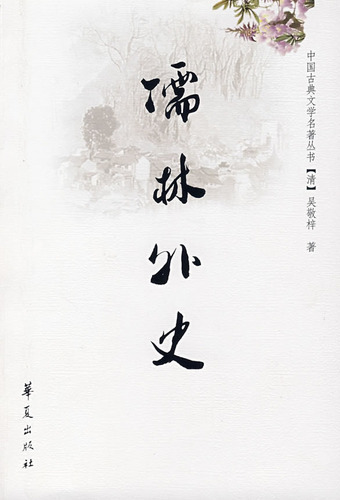 中国古典文学名著丛书【清】吴敬梓 著
儒林外史
華夏出版社